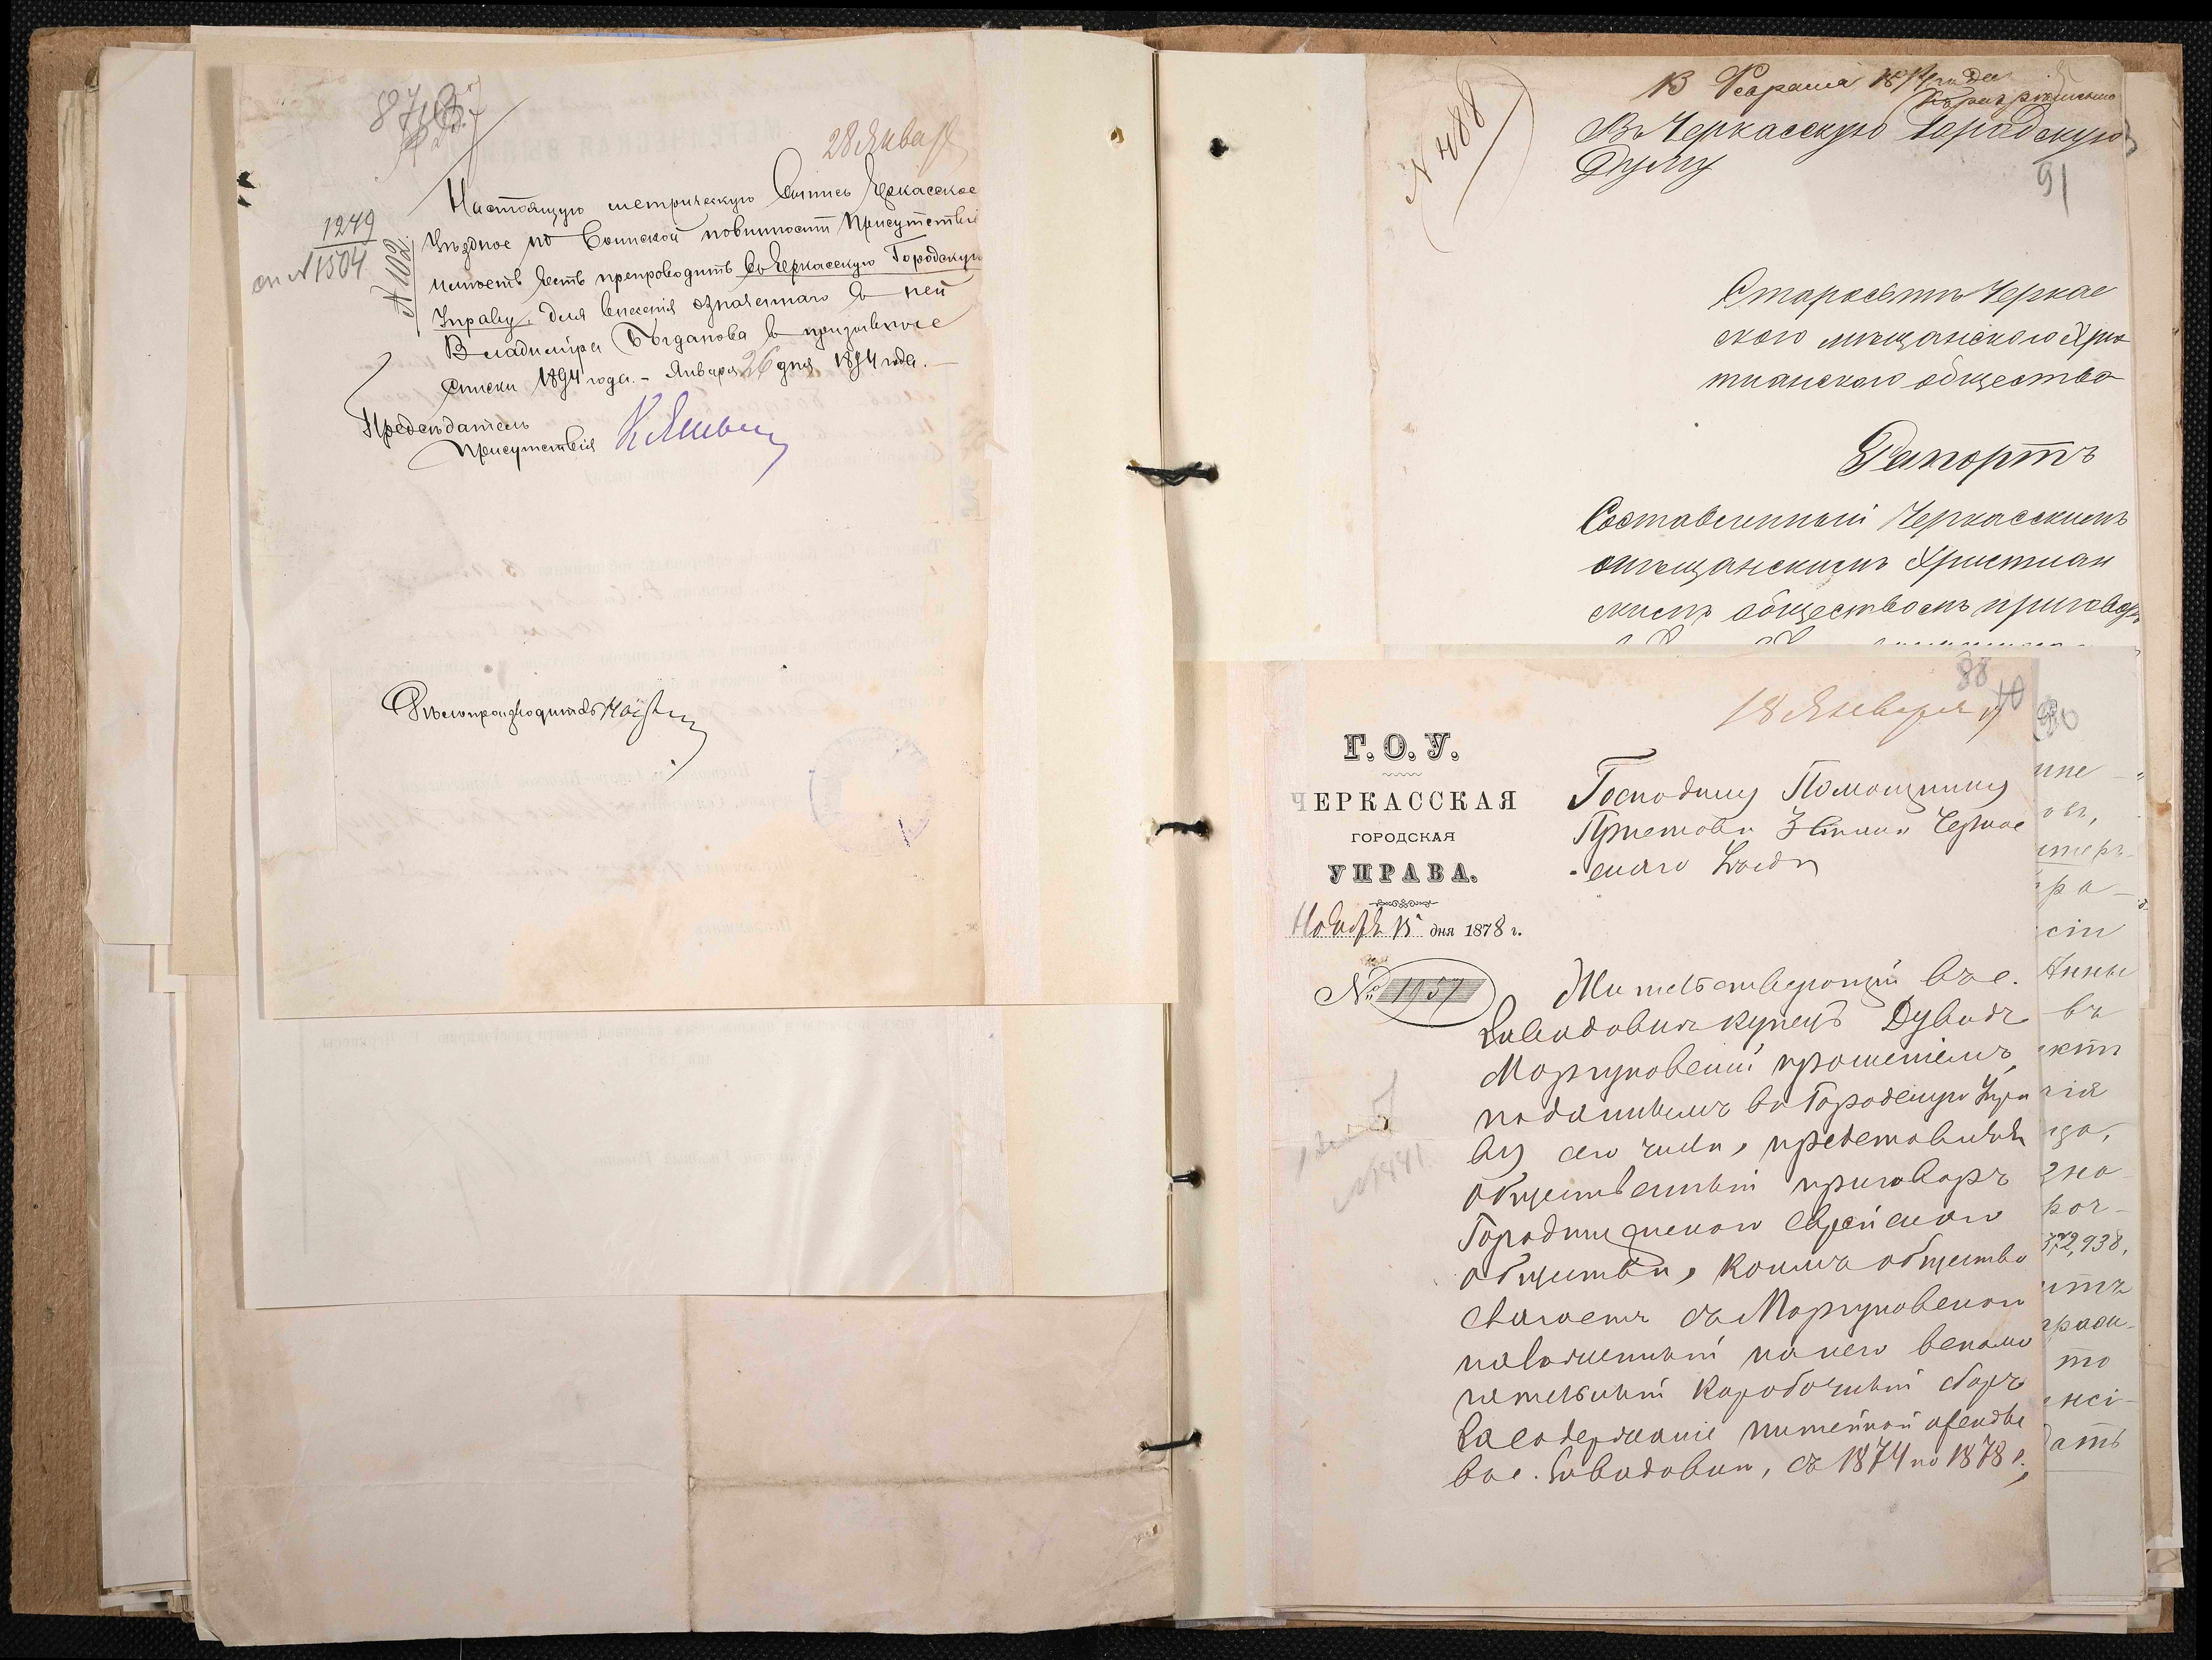 28 Январ
1249
1504
№ 102
Настоящую метрическую Выпись Черкасское
Уѣздное по Воинской повинности Присутствіе
имѣетъ честь препроводить въ Черкасскую Городскую
Управу, для внесенія означеннаго въ ней
Владиміра Богданова въ призывные
списки 1894 года. - Января 26 дня 1894 года. -
Предсѣдатель
Присутствія
Дѣлопроизводитель
№ 488
Въ Черкасскую Городскую
Думу
91
Старосты Черкас
скаго мѣщанскаго Хрис
тианскаго общества
Рапортъ
Составленный Черкасскимъ
мѣщанскимъ Христиан
скимъ обществомъ приговоръ
88
18 Января
90
Г. О. У.
ЧЕРКАССКАЯ
ГОРОДСКАЯ
УПРАВА.
Ноября 15 дня 1878 г.
№ 1957
Господину Помощнику
Пристава 3 Стана Черкас
скаго Уѣзда
Жительствующій въ с.
купецъ Дувидъ
Моргуновскій прошеніемъ,
поданнымъ въ Городскую Упра
ву сего числа, представилъ
общественный приговоръ
Городищенскаго еврейскаго
общества, коимъ общество
слагаетъ съ Моргуновскаго
наложенный на него вспомо
гательный коробочный сборъ
за содержаніе питейной аренды
въ с. , съ 1874 по 1878 г.,
Анны
въ
938,
то